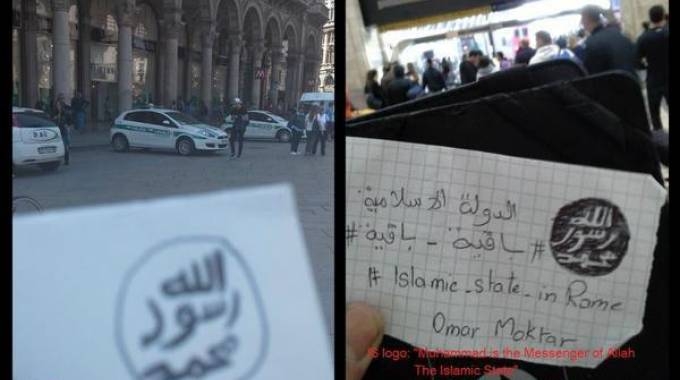 الله
رسول
محمد
M
الدولة الاسلامية
# باقية - باقية #
# Islamic_state_in Rome
Omar Moktar
الله
رسول
محمد
IS logo: "Muhammad is the Messenger of Allah
The Islamic State"